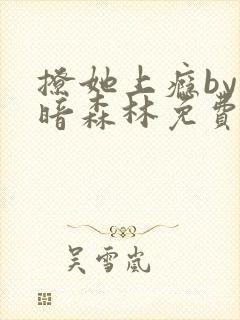 撩她上癮by
暗森林免費
吴雪岚